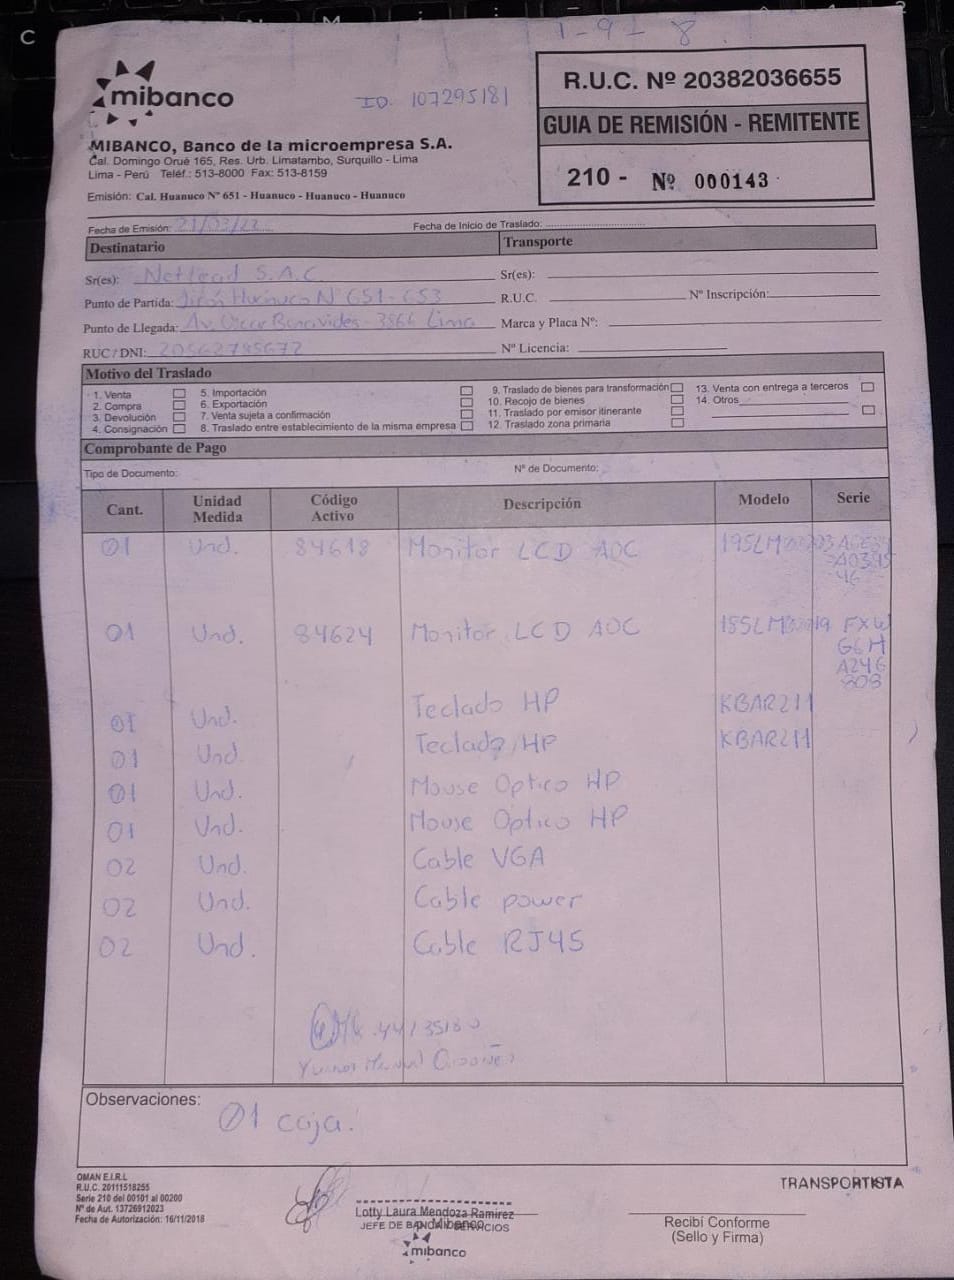 1-9-8
mibanco
ID. 107295181
R.U.C. Nº 20382036655
GUIA DE REMISIÓN - REMITENTE
210 - Nº 000143
MIBANCO, Banco de la microempresa S.A.
Cal. Domingo Orué 165, Res. Urb. Limatambo, Surquillo - Lima
Lima - Perú Teléf.: 513-8000 Fax: 513-8159
Emisión: Cal. Huanuco Nº 651 - Huanuco - Huanuco - Huanuco
Fecha de Emisión: 21/03/22
Fecha de Inicio de Traslado:
Destinatario
Transporte
Sr(es): Netlead S.A.C
Sr(es):
Punto de Partida: Jirón Huánuco Nº 651-653
R.U.C. Nº Inscripción:
Punto de Llegada: Av. Oscar Benavides - 3866 Lima
Marca y Placa Nº:
RUC/DNI: 20562745672
Nº Licencia:
Motivo del Traslado
1. Venta
2. Compra
3. Devolución
4. Consignación
5. Importación
6. Exportación
7. Venta sujeta a confirmación
8. Traslado entre establecimiento de la misma empresa
9. Traslado de bienes para transformación
10. Recojo de bienes
11. Traslado por emisor itinerante
12. Traslado zona primaria
13. Venta con entrega a terceros
14. Otros
Comprobante de Pago
Tipo de Documento:
Nº de Documento:
Cant. Unidad Medida Código Activo Descripción Modelo Serie
01 Und. 84618 Monitor LCD AOC
01 Und. 84624 Monitor LCD AOC FXW
G6H
A246
808
01 Und. Teclado HP KBAR211
01 Und. Teclado HP KBAR211
01 Und. Mouse Optico HP
01 Und. Mouse Optico HP
02 Und. Cable VGA
02 Und. Cable power
02 Und. Cable RJ45
Observaciones: 01 caja.
OMAN E.I.R.L
R.U.C. 20111518255
Serie 210 del 00101 al 00200
Nº de Aut. 13726912023
Fecha de Autorización: 16/11/2018
Lotty Laura Mendoza Ramirez
JEFE DE BANCA Y SERVICIOS
Mibanco
mibanco
TRANSPORTISTA
Recibí Conforme
(Sello y Firma)